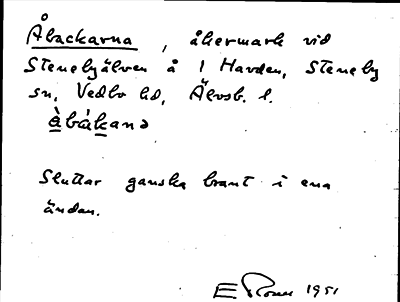 Åbackarna, åkermark vid
Stenebyälven å 1 Havden, Steneby
sn, Vedbo hd, Älvsb. l.
àbákanə
Sluttar ganska brant i ena
ändan.
E 1951